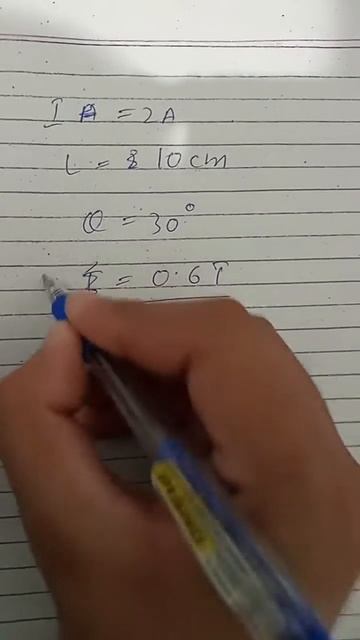 I = 2A
L = 10cm
θ = 30°
= 0.6T